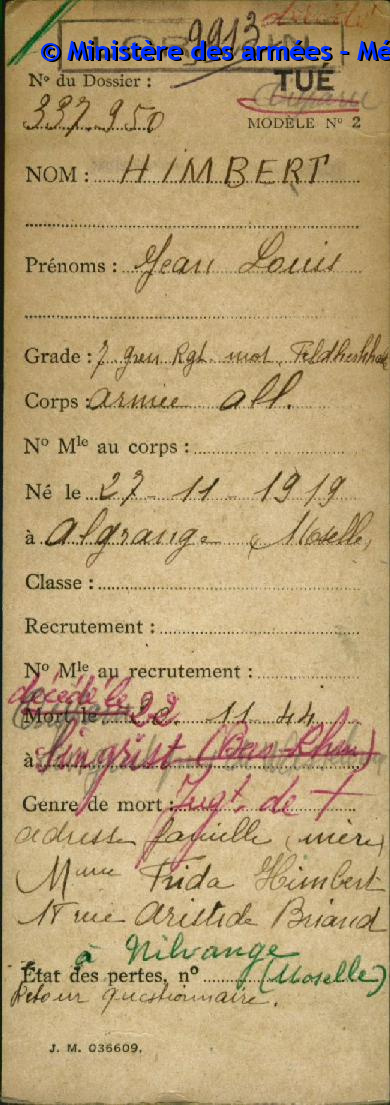 décédé
9913
LORRAIN
© Ministère des armées - Mé
N° du Dossier :
TUÉ
Disparu
337.950
MODÈLE N° 2
NOM : HIMBERT
Prénoms : Jean Louis
Grade : 7 gren Rgt. mot. Feldherrnhalle
Corps : armée all.
N° Mle au corps :
Né le 27 - 11 - 1919
à Algrange (Moselle)
Classe :
Recrutement :
N° Mle au recrutement :
décédé le
Mort le 22 11 44
à Singrist (Bas-Rhin)
Genre de mort : Jugt. de +
adresse famille (mère)
Mme Frida Himbert
rue Aristide Briand
à Nilvange
État des pertes, n° (Moselle)
Retour questionnaire.
J. M. 036609.